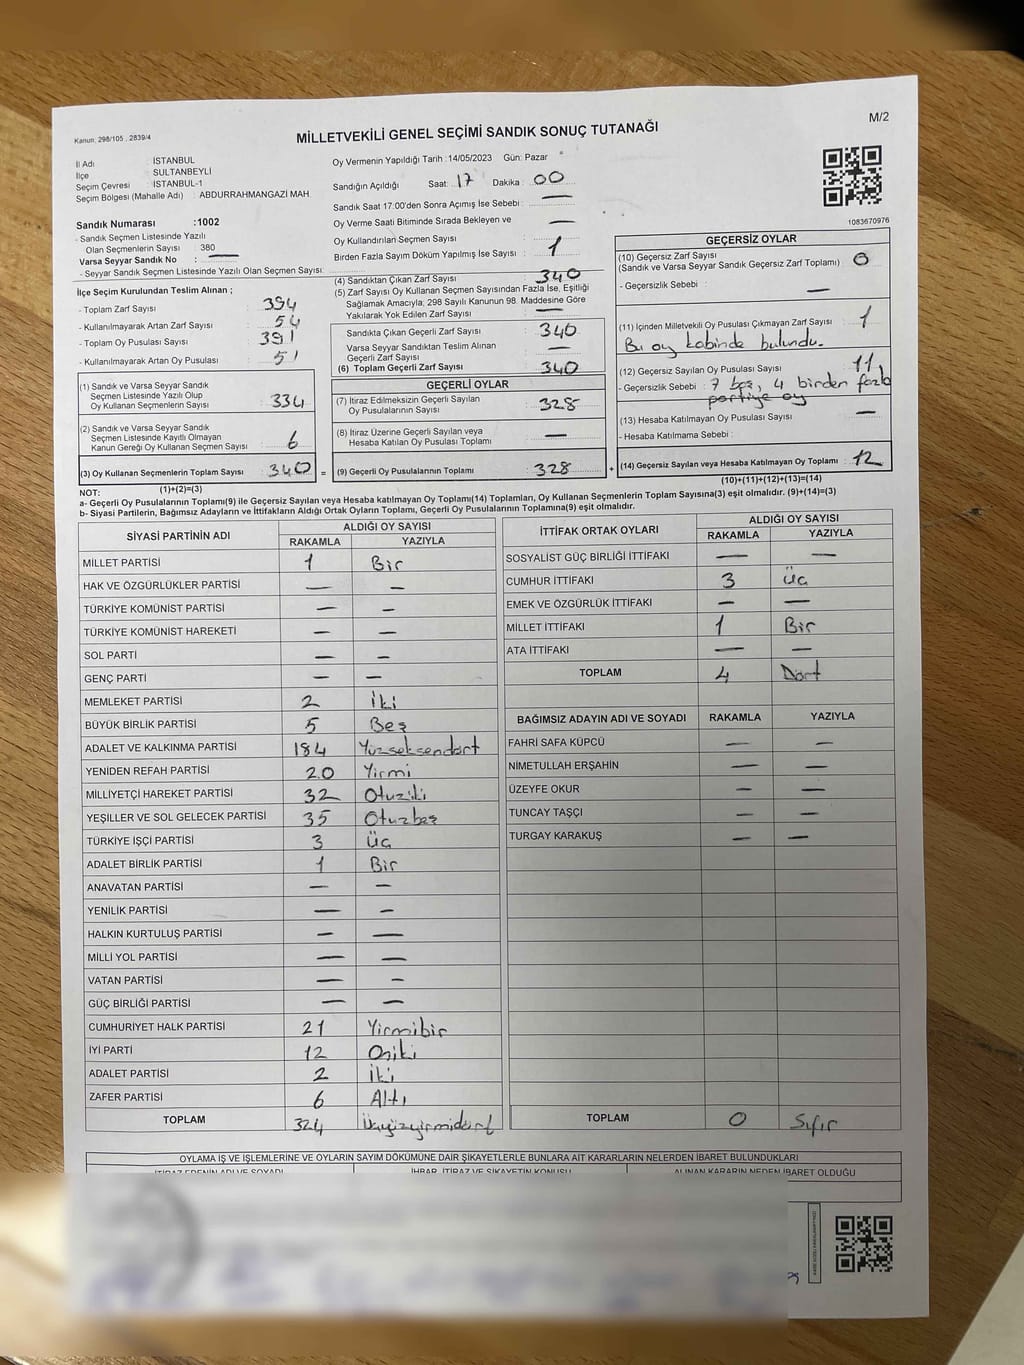 Kanun: 298/105 , 2839/4
MİLLETVEKİLİ GENEL SEÇİMİ SANDIK SONUÇ TUTANAĞI
M/2
İl Adı : İSTANBUL
İlçe : SULTANBEYLİ
Seçim Çevresi : İSTANBUL-1
Seçim Bölgesi (Mahalle Adı) : ABDURRAHMANGAZİ MAH.
Sandık Numarası :1002
- Sandık Seçmen Listesinde Yazılı
Olan Seçmenlerin Sayısı 380
Varsa Seyyar Sandık No : —
- Seyyar Sandık Seçmen Listesinde Yazılı Olan Seçmen Sayısı:
Oy Vermenin Yapıldığı Tarih : 14/05/2023 Gün: Pazar
Sandığın Açıldığı Saat: 17 Dakika : 00
Sandık Saat 17:00'den Sonra Açımış İse Sebebi : —
Oy Verme Saati Bitiminde Sırada Bekleyen ve —
Oy Kullandırılan Seçmen Sayısı :
Birden Fazla Sayım Döküm Yapılmış İse Sayısı : 1
1083670976
İlçe Seçim Kurulundan Teslim Alınan ;
- Toplam Zarf Sayısı : 394
- Kullanılmayarak Artan Zarf Sayısı : 54
- Toplam Oy Pusulası Sayısı : 391
- Kullanılmayarak Artan Oy Pusulası : 51
(1) Sandık ve Varsa Seyyar Sandık
Seçmen Listesinde Yazılı Olup
Oy Kullanan Seçmenlerin Sayısı : 334
(2) Sandık ve Varsa Seyyar Sandık
Seçmen Listesinde Kayıtlı Olmayan
Kanun Gereği Oy Kullanan Seçmen Sayısı : 6
(3) Oy Kullanan Seçmenlerin Toplam Sayısı : 340 =
(1)+(2)=(3)
(4) Sandıktan Çıkan Zarf Sayısı : 340
(5) Zarf Sayısı Oy Kullanan Seçmen Sayısından Fazla İse, Eşitliği
Sağlamak Amacıyla; 298 Sayılı Kanunun 98. Maddesine Göre
Yakılarak Yok Edilen Zarf Sayısı : —
Sandıkta Çıkan Geçerli Zarf Sayısı : 340
Varsa Seyyar Sandıktan Teslim Alınan
Geçerli Zarf Sayısı : —
(6) Toplam Geçerli Zarf Sayısı : 340
GEÇERLİ OYLAR
(7) İtiraz Edilmeksizin Geçerli Sayılan
Oy Pusulalarının Sayısı : 328
(8) İtiraz Üzerine Geçerli Sayılan veya
Hesaba Katılan Oy Pusulası Toplamı : —
(9) Geçerli Oy Pusulalarının Toplamı : 328 +
GEÇERSİZ OYLAR
(10) Geçersiz Zarf Sayısı : 0
(Sandık ve Varsa Seyyar Sandık Geçersiz Zarf Toplamı)
- Geçersizlik Sebebi : —
(11) İçinden Milletvekili Oy Pusulası Çıkmayan Zarf Sayısı : 1
Bu oy kabinde bulundu.
(12) Geçersiz Sayılan Oy Pusulası Sayısı : 11
- Geçersizlik Sebebi : 7 boş, 4 birden fazla
partiye oy
(13) Hesaba Katılmayan Oy Pusulası Sayısı : —
- Hesaba Katılmama Sebebi :
(14) Geçersiz Sayılan veya Hesaba Katılmayan Oy Toplamı : 12
(10)+(11)+(12)+(13)=(14)
NOT:
a- Geçerli Oy Pusulalarının Toplamı(9) ile Geçersiz Sayılan veya Hesaba katılmayan Oy Toplamı(14) Toplamları, Oy Kullanan Seçmenlerin Toplam Sayısına(3) eşit olmalıdır. (9)+(14)=(3)
b- Siyasi Partilerin, Bağımsız Adayların ve İttifakların Aldığı Ortak Oyların Toplamı, Geçerli Oy Pusulalarının Toplamına(9) eşit olmalıdır.
SİYASİ PARTİNİN ADI ALDIĞI OY SAYISI
RAKAMLA YAZIYLA
MİLLET PARTİSİ 1 Bir
HAK VE ÖZGÜRLÜKLER PARTİSİ — —
TÜRKİYE KOMÜNİST PARTİSİ — —
TÜRKİYE KOMÜNİST HAREKETİ — —
SOL PARTİ — —
GENÇ PARTİ — —
MEMLEKET PARTİSİ 2 İki
BÜYÜK BİRLİK PARTİSİ 5 Beş
ADALET VE KALKINMA PARTİSİ 184 Yüzseksendört
YENİDEN REFAH PARTİSİ 20 Yirmi
MİLLİYETÇİ HAREKET PARTİSİ 32 Otuziki
YEŞİLLER VE SOL GELECEK PARTİSİ 35 Otuzbeş
TÜRKİYE İŞÇİ PARTİSİ 3 Üç
ADALET BİRLİK PARTİSİ 1 Bir
ANAVATAN PARTİSİ — —
YENİLİK PARTİSİ — —
HALKIN KURTULUŞ PARTİSİ — —
MİLLİ YOL PARTİSİ — —
VATAN PARTİSİ — —
GÜÇ BİRLİĞİ PARTİSİ — —
CUMHURİYET HALK PARTİSİ 21 Yirmibir
İYİ PARTİ 12 Oniki
ADALET PARTİSİ 2 İki
ZAFER PARTİSİ 6 Altı
TOPLAM 324 Üçyüzyirmidört
İTTİFAK ORTAK OYLARI ALDIĞI OY SAYISI
RAKAMLA YAZIYLA
SOSYALİST GÜÇ BİRLİĞİ İTTİFAKI — —
CUMHUR İTTİFAKI 3 Üç
EMEK VE ÖZGÜRLÜK İTTİFAKI — —
MİLLET İTTİFAKI 1 Bir
ATA İTTİFAKI — —
TOPLAM 4 Dört
BAĞIMSIZ ADAYIN ADI VE SOYADI RAKAMLA YAZIYLA
FAHRİ SAFA KÜPCÜ — —
NİMETULLAH ERŞAHİN — —
ÜZEYFE OKUR — —
TUNCAY TAŞÇI — —
TURGAY KARAKUŞ — —
TOPLAM 0 Sıfır
OYLAMA İŞ VE İŞLEMLERİNE VE OYLARIN SAYIM DÖKÜMÜNE DAİR ŞİKAYETLERLE BUNLARA AİT KARARLARIN NELERDEN İBARET BULUNDUKLARI
İTİRAZ EDENİN ADI VE SOYADI İHBAR, İTİRAZ VE ŞİKAYETİN KONUSU ALINAN KARARIN NEDEN İBARET OLDUĞU